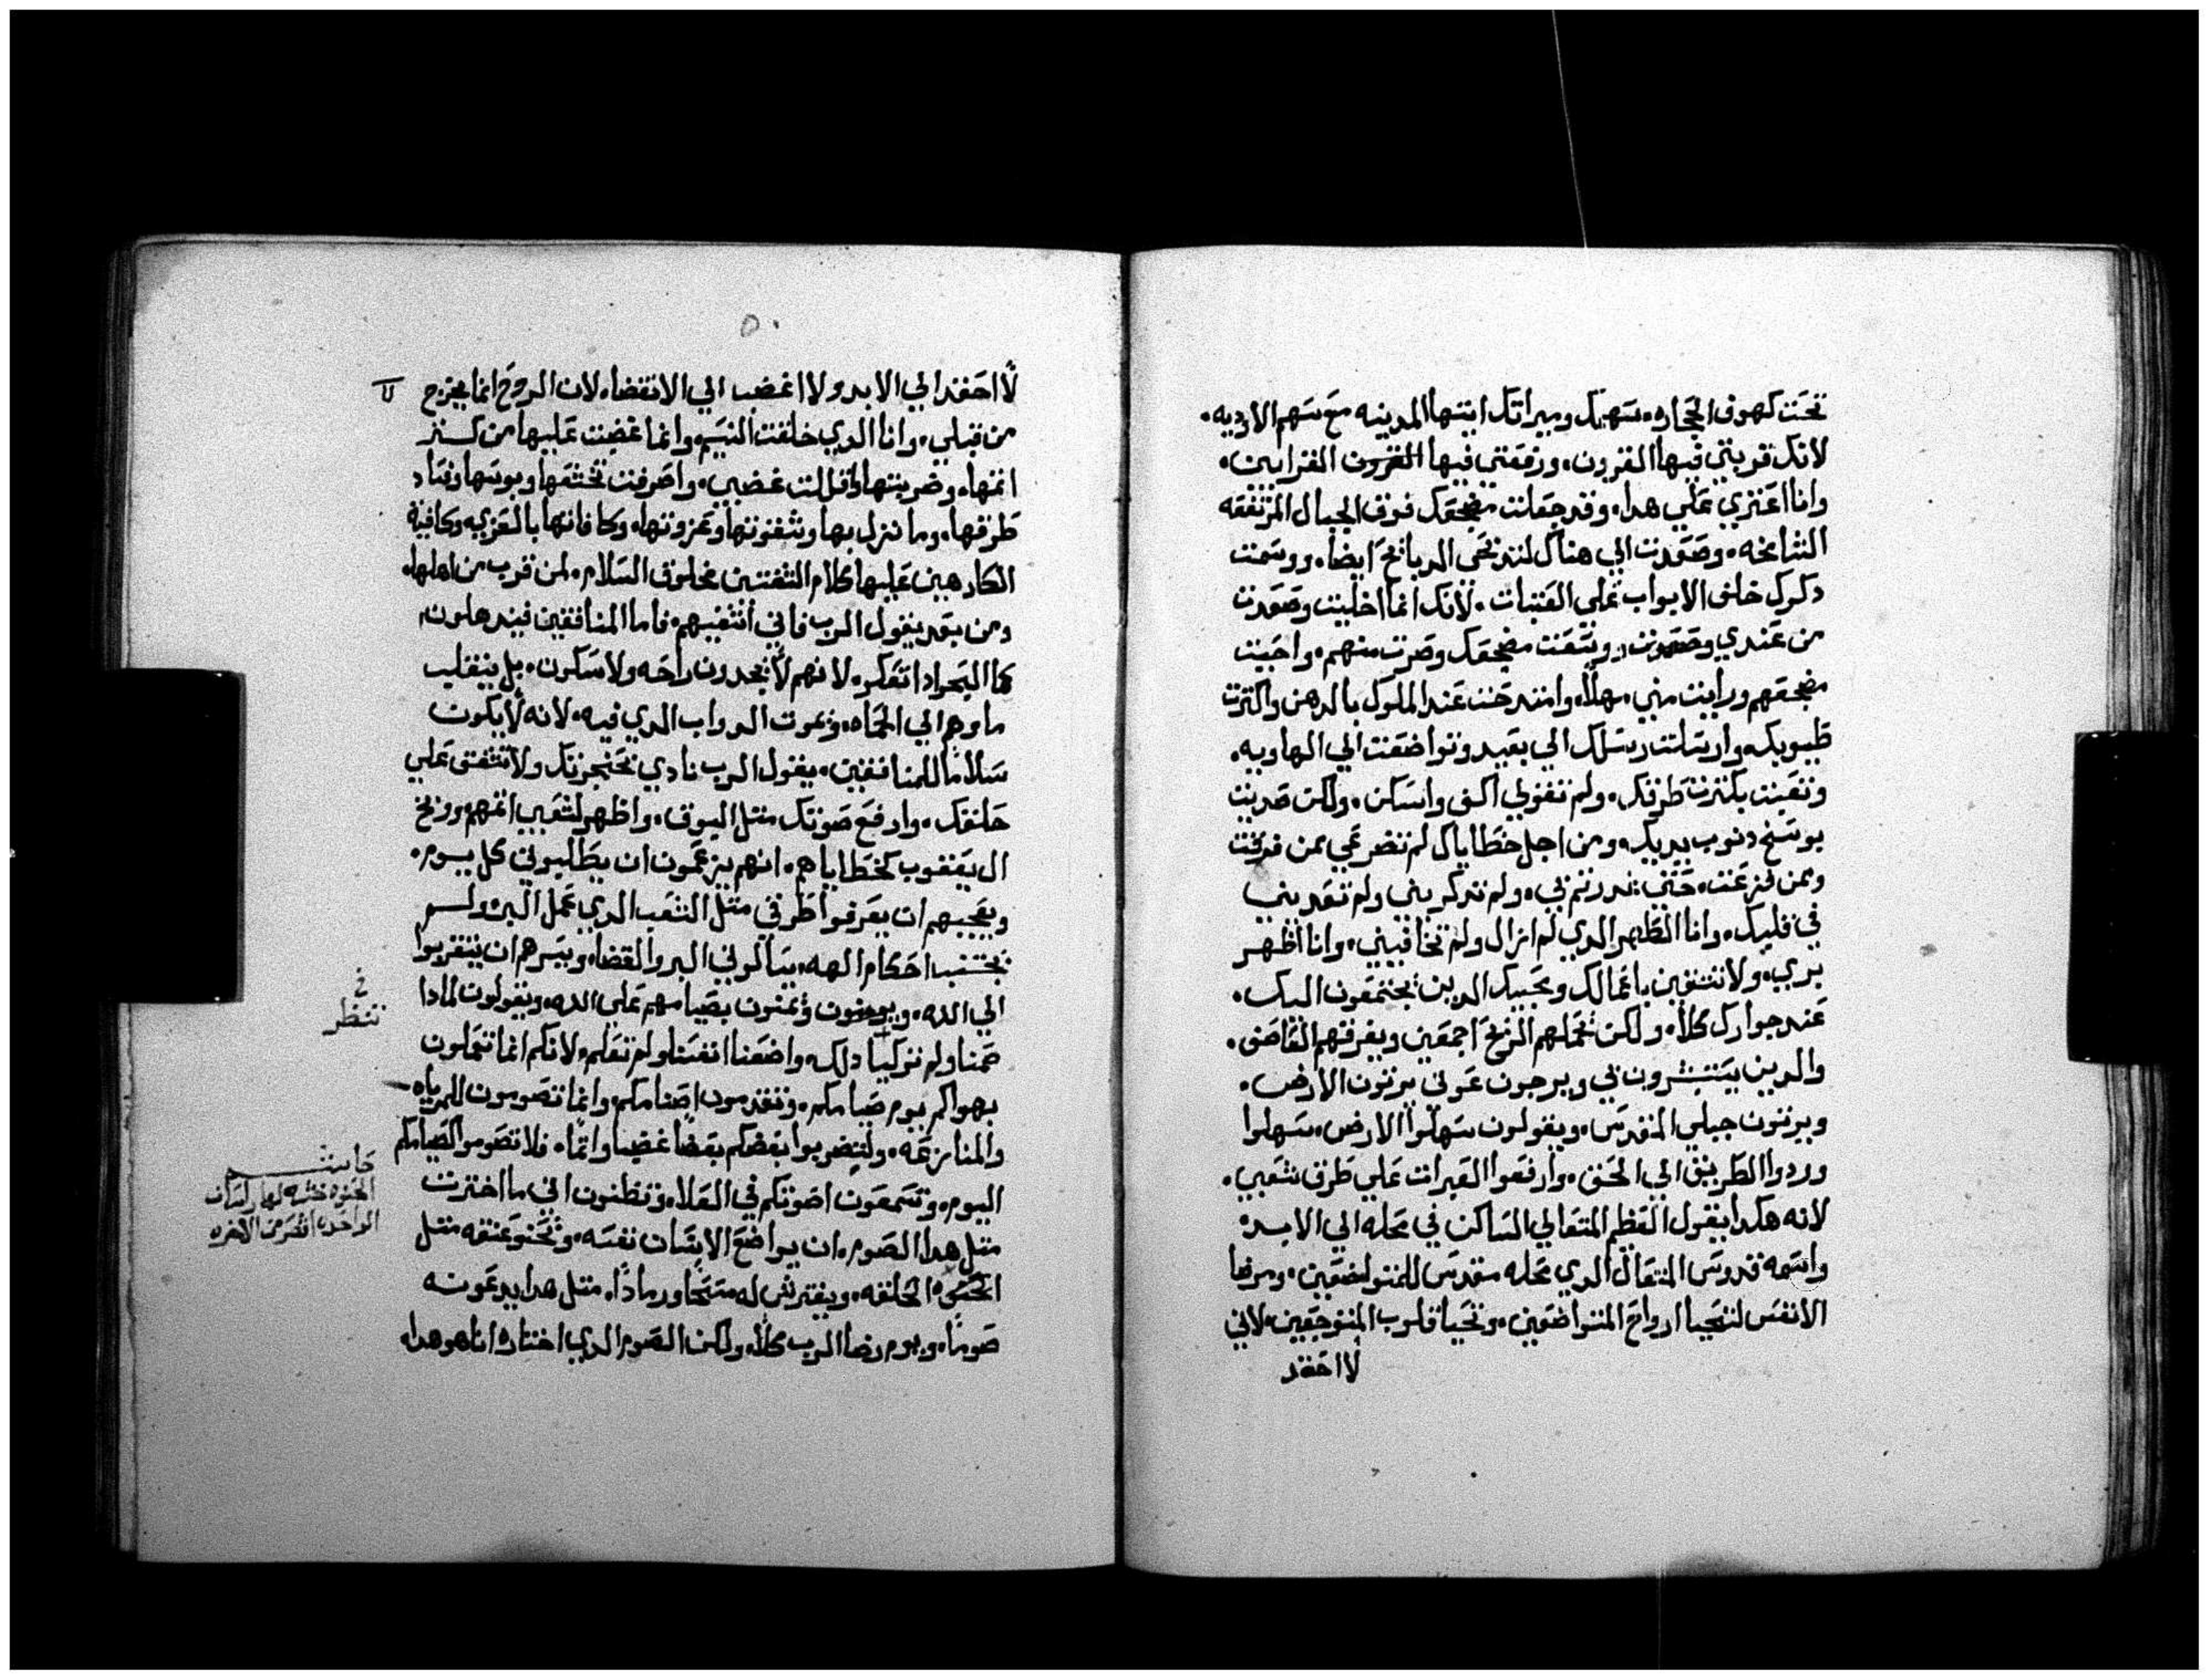 تحت كهوف الحجاره. سهمك وميراتك ايتها المدينه مع سهم الاوديه.
لانك قربتي فيها القربون. ورفعتي فيها القرابين.
وانا اعتزي علي هدا. وقد جعلت مضجعك فوق الجبال المرتفعه
الشامخه. وصعدت الي هناك لتدبحي الدبايح ايضا. ورسمت
دكرك خلف الابواب علي العتبات. لانك انما اخليت وصعدت
من عندي وصعدت. ووسعت مضجعك وصرت منهم. واحببت
مضجعهم ورايت مني سهلا. وامتدحت عند الملوك بالدهن واكترت
طيوبك. وارسلت رسلك الي بعيد وتواضعت الي الهاويه.
وتعبت بكترت طرقك. ولم تقولي اكف واسكن. ولكن
بوسخ دنوب يديك. ومن اجل خطاياك لم تضرعي ممن فرقت
وممن فزعت. حتي بي. ولم تدكريني ولم تعديني
في قلبك. وانا الطهر الدي لم ازال ولم تخافيني. وانا اظهر
بري. ولا تنتفعين باعمالك ومحبيك الدين يجتمعون اليك.
عند جوارك كلا. ولكن تحملهم الريح اجمعين ويفرقهم العاصف.
والدين يستبشرون بي ويرجون عوني يرتون الارض.
ويرتون جبلي المقدس. ويقولون سهلوا الارض. سهلوا
وردوا الطريق الي الحق. وارفعوا العبرات علي طرق شعبي.
لانه هكدا يقول العظم المتعالي الساكن في محله الي الابد
واسمه قدوس المتعال الدي محله مقدس للمتواضعين. ومرضا
الانفس لتحيا ارواح المتواضعين. وتحيا قلوب المتوجعين. لاني
لا احقد
٥٠
لا احقد الي الابد ولا اغضب الي الانقضاء. لان الروح انما يخرج
من قبلي. وانا الدي خلقت النسم. وانما غضبت عليها من
اتمها. وضربتها غضبي. واصرفت
طرقها. وما نزل بها وشفوتها وعزوتها. وكافاتها بالعزيه وكافية
الكارهين عليها كلام الشفتين مخلوق السلام. لمن قرب من اهلها.
ومن بعد يقول الرب فاني اشفيهم. فاما المنافقين فيدهلون
كما البحر ادا تعكر. لانهم لا يجدون راحه ولا سكون. بل ينقلب
ماوهم الي الحماه. وتموت الدواب الدي فيه. لانه لا يكون
سلاما للمنافقين. يقول الرب نادي بحنجرتك ولا تشفق علي
حلقك. وارفع صوتك متل البوق. واظهر لشعبي اتمهم ووبخ
ال يعقوب بخطاياهم. انهم يزعمون ان يطلبوني كل يوم.
ويعجبهم ان يعرفوا طرقي متل الشعب الدي عمل البر ولم
يجتنب احكام الهه. يسالوني البر والقضا. ويسرهم ان يتقربوا
الي الله. ويومنون ويمنون بصيامهم علي الله. ويقولون لمادا
صمنا ولم تزكيا دلك. واضعنا انفسنا ولم تعلم. لانكم انما تتعملون
بهواكم يوم صيامكم. وتقدمون اصنامكم. وانما تصومون للمرياه
والمنازعه. ولتضربوا بعضكم بعضا غضبا واتما. فلا تصوموا كصيامكم
اليوم. وتسمعون اصوتكم في العلاء. وتظنون اني ما اخترت
متل هدا الصوم. ان يواضع الانسان نفسه. وتحنو عنقه متل
الحنوه الحلقه. ويفترش له مسحا ورمادا. متل هدا يدعون
صوما. ويوم رضا الرب كلا. ولكن الصوم الدي اختاره انا هو هدا.
خ
تنظر
حاشيه
الحنوه خشبه لها راسان
الواحده اقصر من الاخره